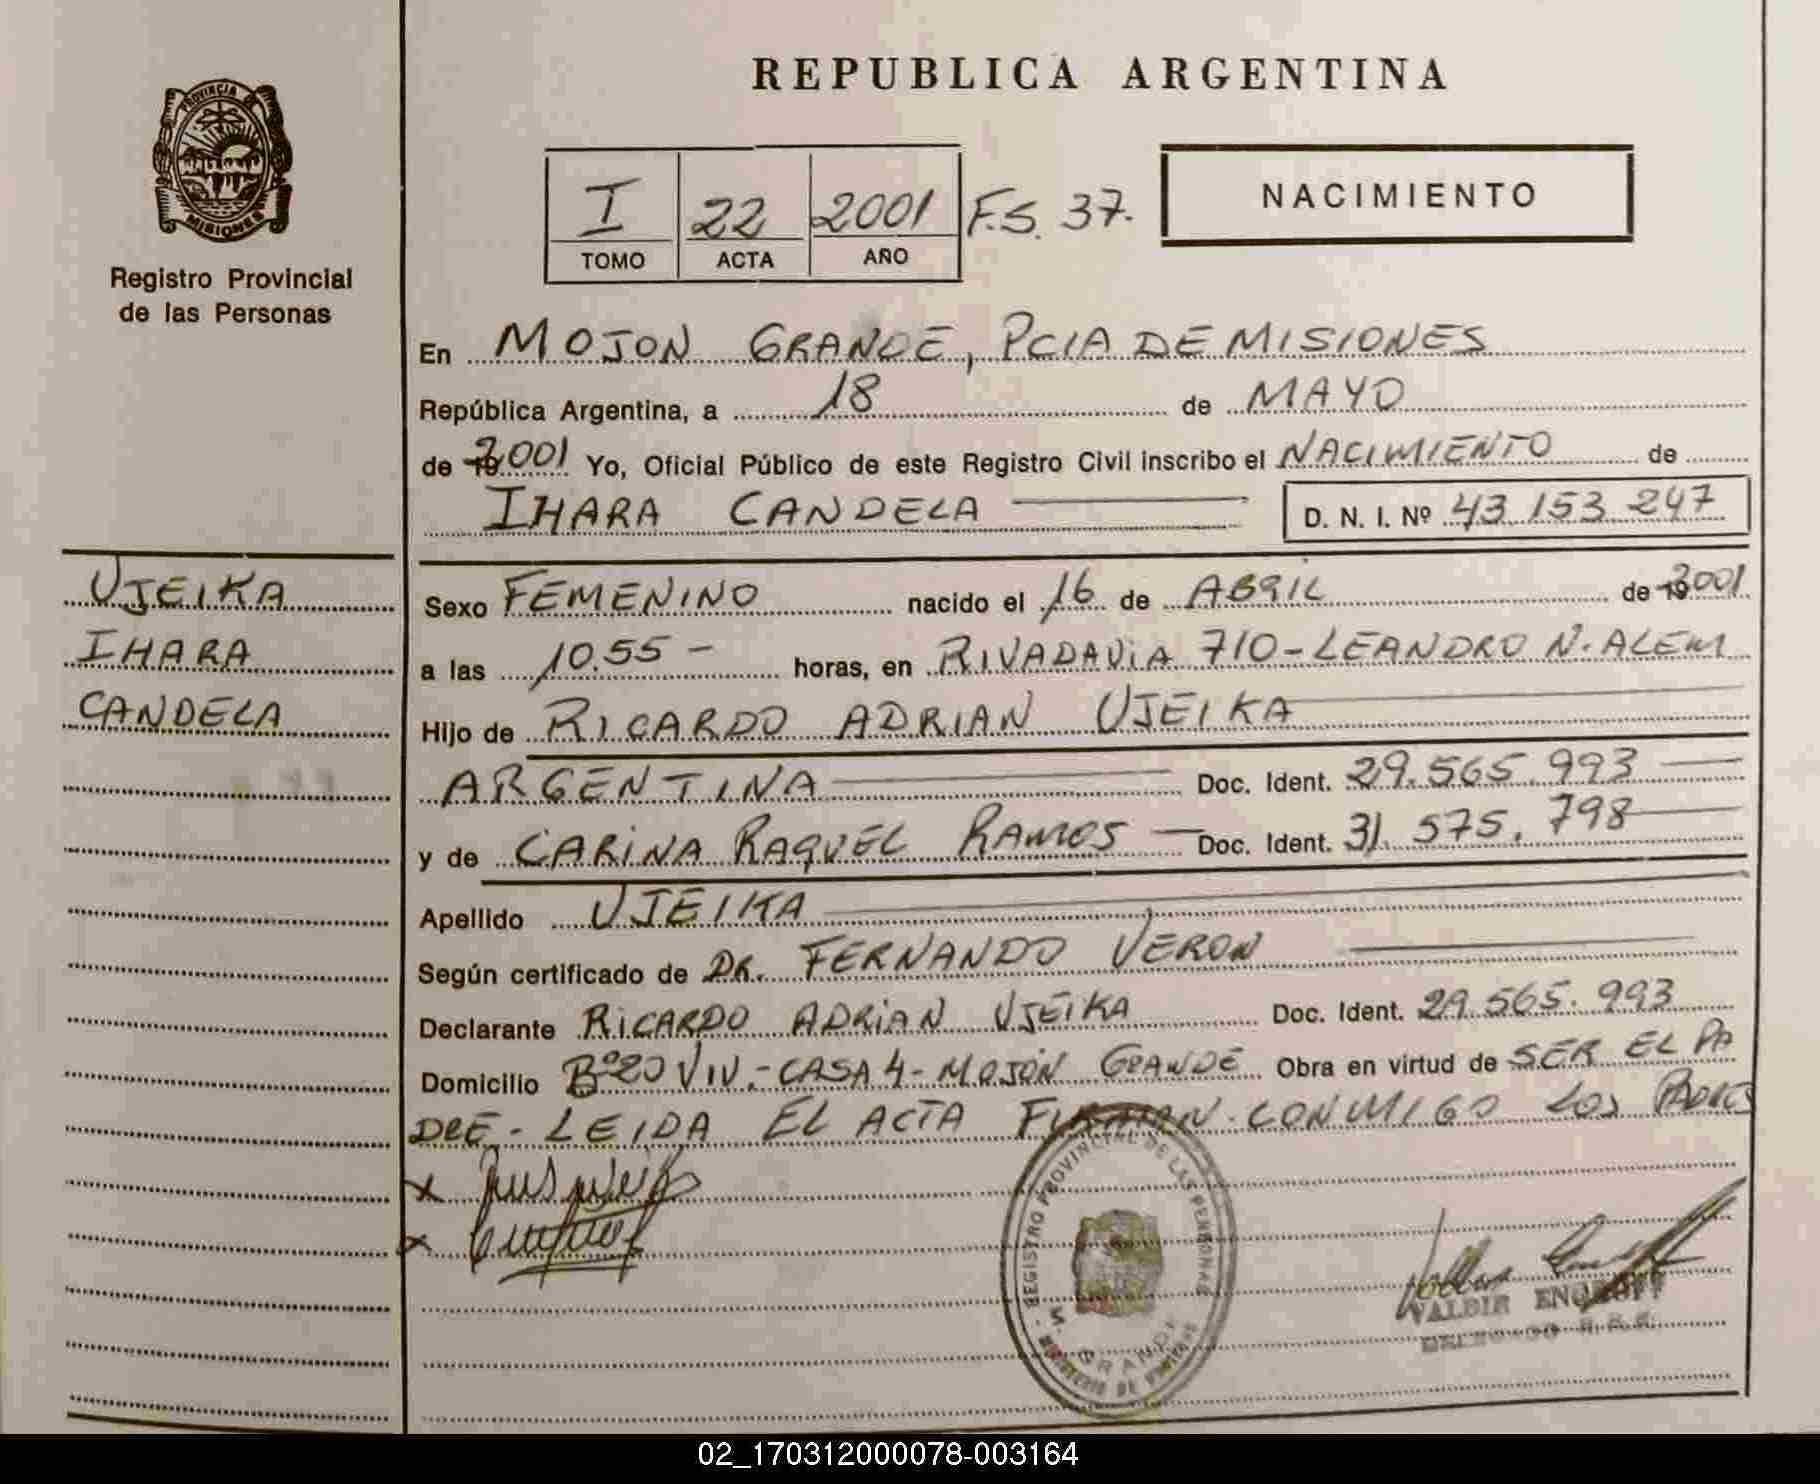 REPUBLICA ARGENTINA
PROVINCIA DE
MISIONES
Registro Provincial
de las Personas
I 22 2001 F.S. 37.
TOMO ACTA AÑO
NACIMIENTO
En MOJON GRANDE, PCIA DE MISIONES
República Argentina, a 18 de MAYO
de 2001 Yo, Oficial Público de este Registro Civil inscribo el NACIMIENTO de
IHARA CANDELA D. N. I. Nº 43 153 247
UJEIKA
IHARA
CANDELA
Sexo FEMENINO nacido el 16 de ABRIL de 2001
a las 10.55 - horas, en RIVADAVIA 710-LEANDRO N. ALEM
Hijo de RICARDO ADRIAN UJEIKA
ARGENTINA Doc. Ident. 29.565.993
y de CARINA RAQUEL RAMOS Doc. Ident. 31.575.798
Apellido UJEIKA
Según certificado de DR. FERNANDO VERON
Declarante RICARDO ADRIAN UJEIKA Doc. Ident. 29.565.993
Domicilio Bº20 VIV.-CASA 4-MOJÓN GRANDE Obra en virtud de SER EL PA
DRE - LEIDA EL ACTA FIRMAN CONMIGO LOS PADRES
REGISTRO PROVINCIAL DE LAS PERSONAS
M. GRANDE
VALDIR
02_170312000078-003164